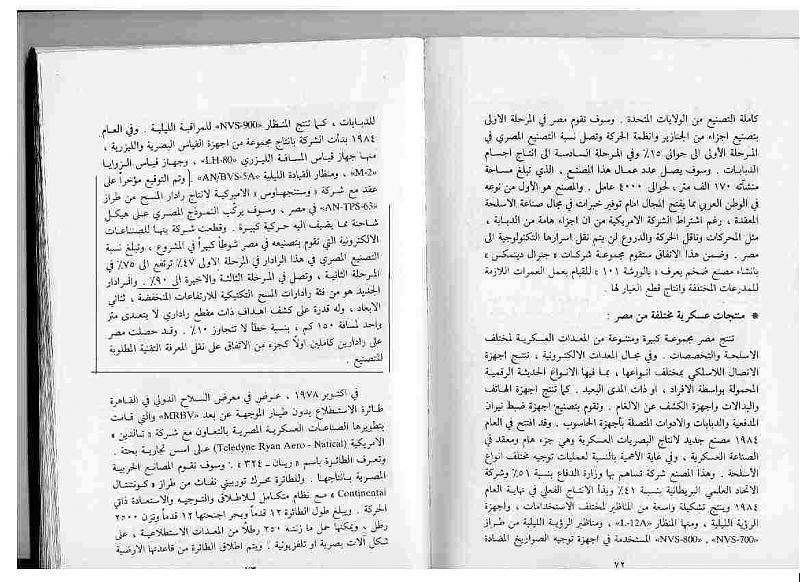 كاملة التصنيع من الولايات المتحدة . وسوف تقوم مصر في المرحلة الاولى
بتصنيع اجزاء من الجنازير وانظمة الحركة وتصل نسبة التصنيع المصري في
المرحلة الأولى الى حوالى ١٥٪ وفي المرحلة السادسة الى انتاج اجسام
الدبابات . وسوف يصل عدد عمال هذا المصنع ، الذي تبلغ مساحة
منشآته ١٧٠ الف متر ، لحوالى ٤٠٠٠ عامل . والمصنع هو الأول من نوعه
في الوطن العربي مما يفتح المجال امام توفير خبرات في مجال صناعة الاسلحة
المعقدة ، رغم اشتراط الشركة الامريكية من ان اجزاء هامة من الدبابة ،
مثل المحركات وناقل الحركة والدروع لن يتم نقل اسرارها التكنولوجية الى
مصر . وضمن هذا الاتفاق ستقوم مجموعة شركات « جنرال دينمكس »
بانشاء مصنع ضخم يعرف « بالورشة ١٠١ » للقيام بعمل العمرات اللازمة
للمدرعات المختلفة وانتاج قطع الغيار لها .
* منتجات عسكرية مختلفة من مصر :
تنتج مصر مجموعة كبيرة ومتنوعة من المعدات العسكرية لمختلف
الاسلحة والتخصصات . وفي مجال المعدات الالكترونية ، تنتج اجهزة
الاتصال اللاسلكي بمختلف انواعها ، بما فيها الانواع الحديثة الرقمية
المحمولة بواسطة الافراد ، او ذات المدى البعيد . كما تنتج اجهزة الهاتف
والبدالات واجهزة الكشف عن الالغام . وتقوم بتصنيع اجهزة ضبط نيران
المدفعية والدبابات والادوات المتصلة بأجهزة الحاسوب . وقد افتتح في العام
١٩٨٤ مصنع جديد لانتاج البصريات العسكرية وهي جزء هام ومعقد في
الصناعة العسكرية ، وفي غاية الاهمية بالنسبة لعمليات توجيه مختلف انواع
الأسلحة . وهذا المصنع شركة تساهم بها وزارة الدفاع بنسبة ٥١٪ وشركة
الاتحاد العلمي البريطانية بنسبة ٤١٪ وبدأ الانتاج الفعلي في نهاية العام
١٩٨٤ وينتج تشكيلة واسعة من المناظير لمختلف الاستخدامات ، واجهزة
الرؤية الليلية ، ومنها المنظار «L-12A» ، ومناظير الرؤية الليلية من طراز
«NVS-700» ، «NVS-800» المستخدمة في اجهزة توجيه الصواريخ المضادة
٧٢
للدبابات ، كما تنتج المنظار «NVS-900» للمراقبة الليلية . وفي العام
١٩٨٤ بدأت الشركة بانتاج مجموعة من اجهزة القياس البصرية والليزرية ،
منها جهاز قياس المسافة الليزري «LH-80» ، وجهاز قياس الزوايا
«M-2» ، ومنظار القيادة الليلية «AN/BVS-5A» . وتم التوقيع مؤخراً على
عقد مع شركة « وستنجهاوس » الاميركية لانتاج رادار المسح من طراز
«AN-TPS-63» في مصر ، وسوف يركّب النموذج المصري على هيكل
شاحنة مما يضيف اليه حركية كبيرة . وقطعت شركة بنها للصناعات
الالكترونية التي تقوم بتصنيعه في مصر شوطاً كبيراً في المشروع ، وتبلغ نسبة
التصنيع المصري في هذا الرادار في المرحلة الاولى ٤٧٪ ترتفع الى ٧٥٪ في
المرحلة الثانية ، وتصل في المرحلة الثالثة والاخيرة الى ٩٠٪ . والرادار
الجديد هو من فئة رادارات المسح التكتيكية للارتفاعات المنخفضة ، ثنائي
الابعاد ، وله قدرة على كشف اهداف ذات مقطع راداري لا يتعدى متر
واحد لمسافة ١٥٠ كم ، بنسبة خطأ لا تتجاوز ١٠٪ . وقد حصلت مصر
على رادارين كاملين اولاً كجزء من الاتفاق على نقل المعرفة التقنية المطلوبة
للتصنيع .
في اكتوبر ١٩٧٨ ، عرض في معرض السلاح الدولي في القاهرة
طائرة الاستطلاع بدون طيار الموجهة عن بعد «MRBV» والتي قامت
بتطويرها الصناعات العسكرية المصرية بالتعاون مع شركة « تالدين »
الامريكية (Teledyne Ryan Aero - Natical) على اسس تجارية بحتة .
وتعرف الطائرة باسم « ريان - ٣٢٤ » . وسوف تقوم المصانع الحربية
المصرية بانتاجها . وللطائرة محرك توربيني نفاث من طراز « كونتننتال
Continental » مع نظام متكامل للاطلاق والتوجيه والاستعادة ذاتي
الحركة . ويبلغ طول الطائرة ١٢ قدماً وبحر اجنحتها ١٢ قدماً وتزن ٢٥٠٠
رطل ، ويمكنها حمل ما زنته ٢٥٠ رطلاً من المعدات الاستطلاعية ، على
شكل آلات بصرية او تلفزيونية . ويتم اطلاق الطائرة من قاعدتها الارضية